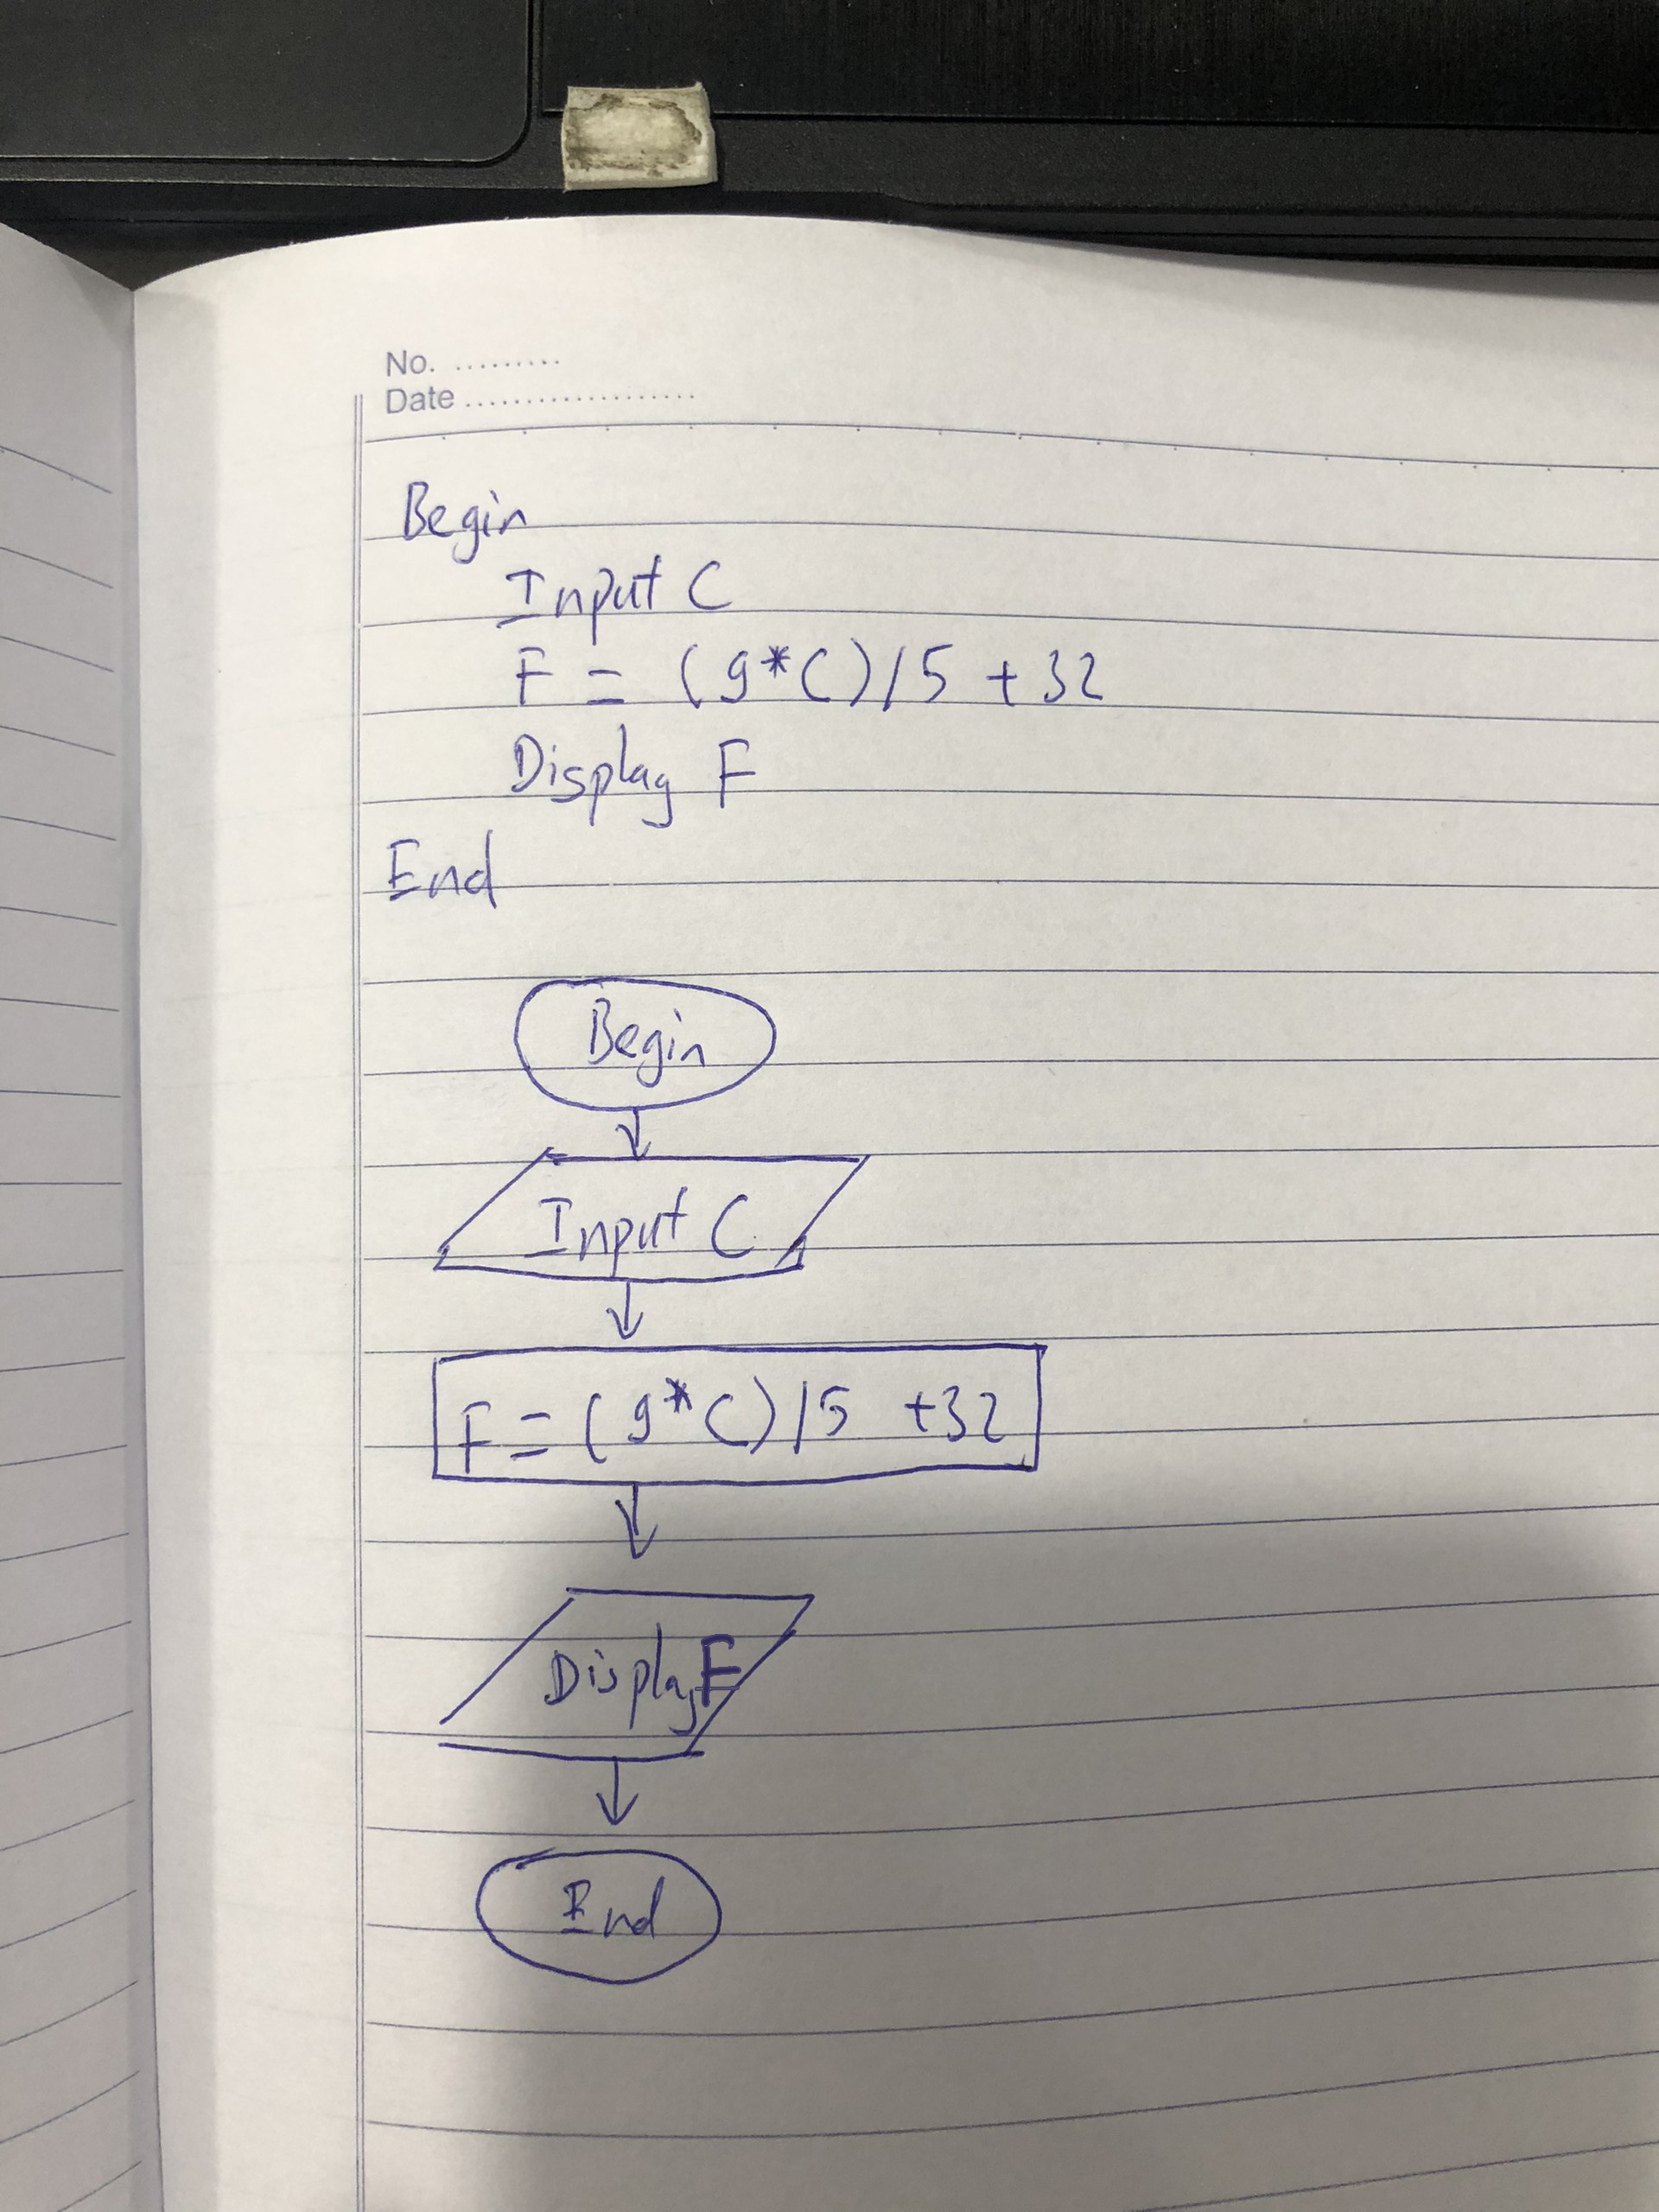 No. .........
Date ...................
Begin
Input C
F = (9*C)/5 + 32
Display F
End
Begin
Input C
F = (9*C)/5 +32
Display F
End